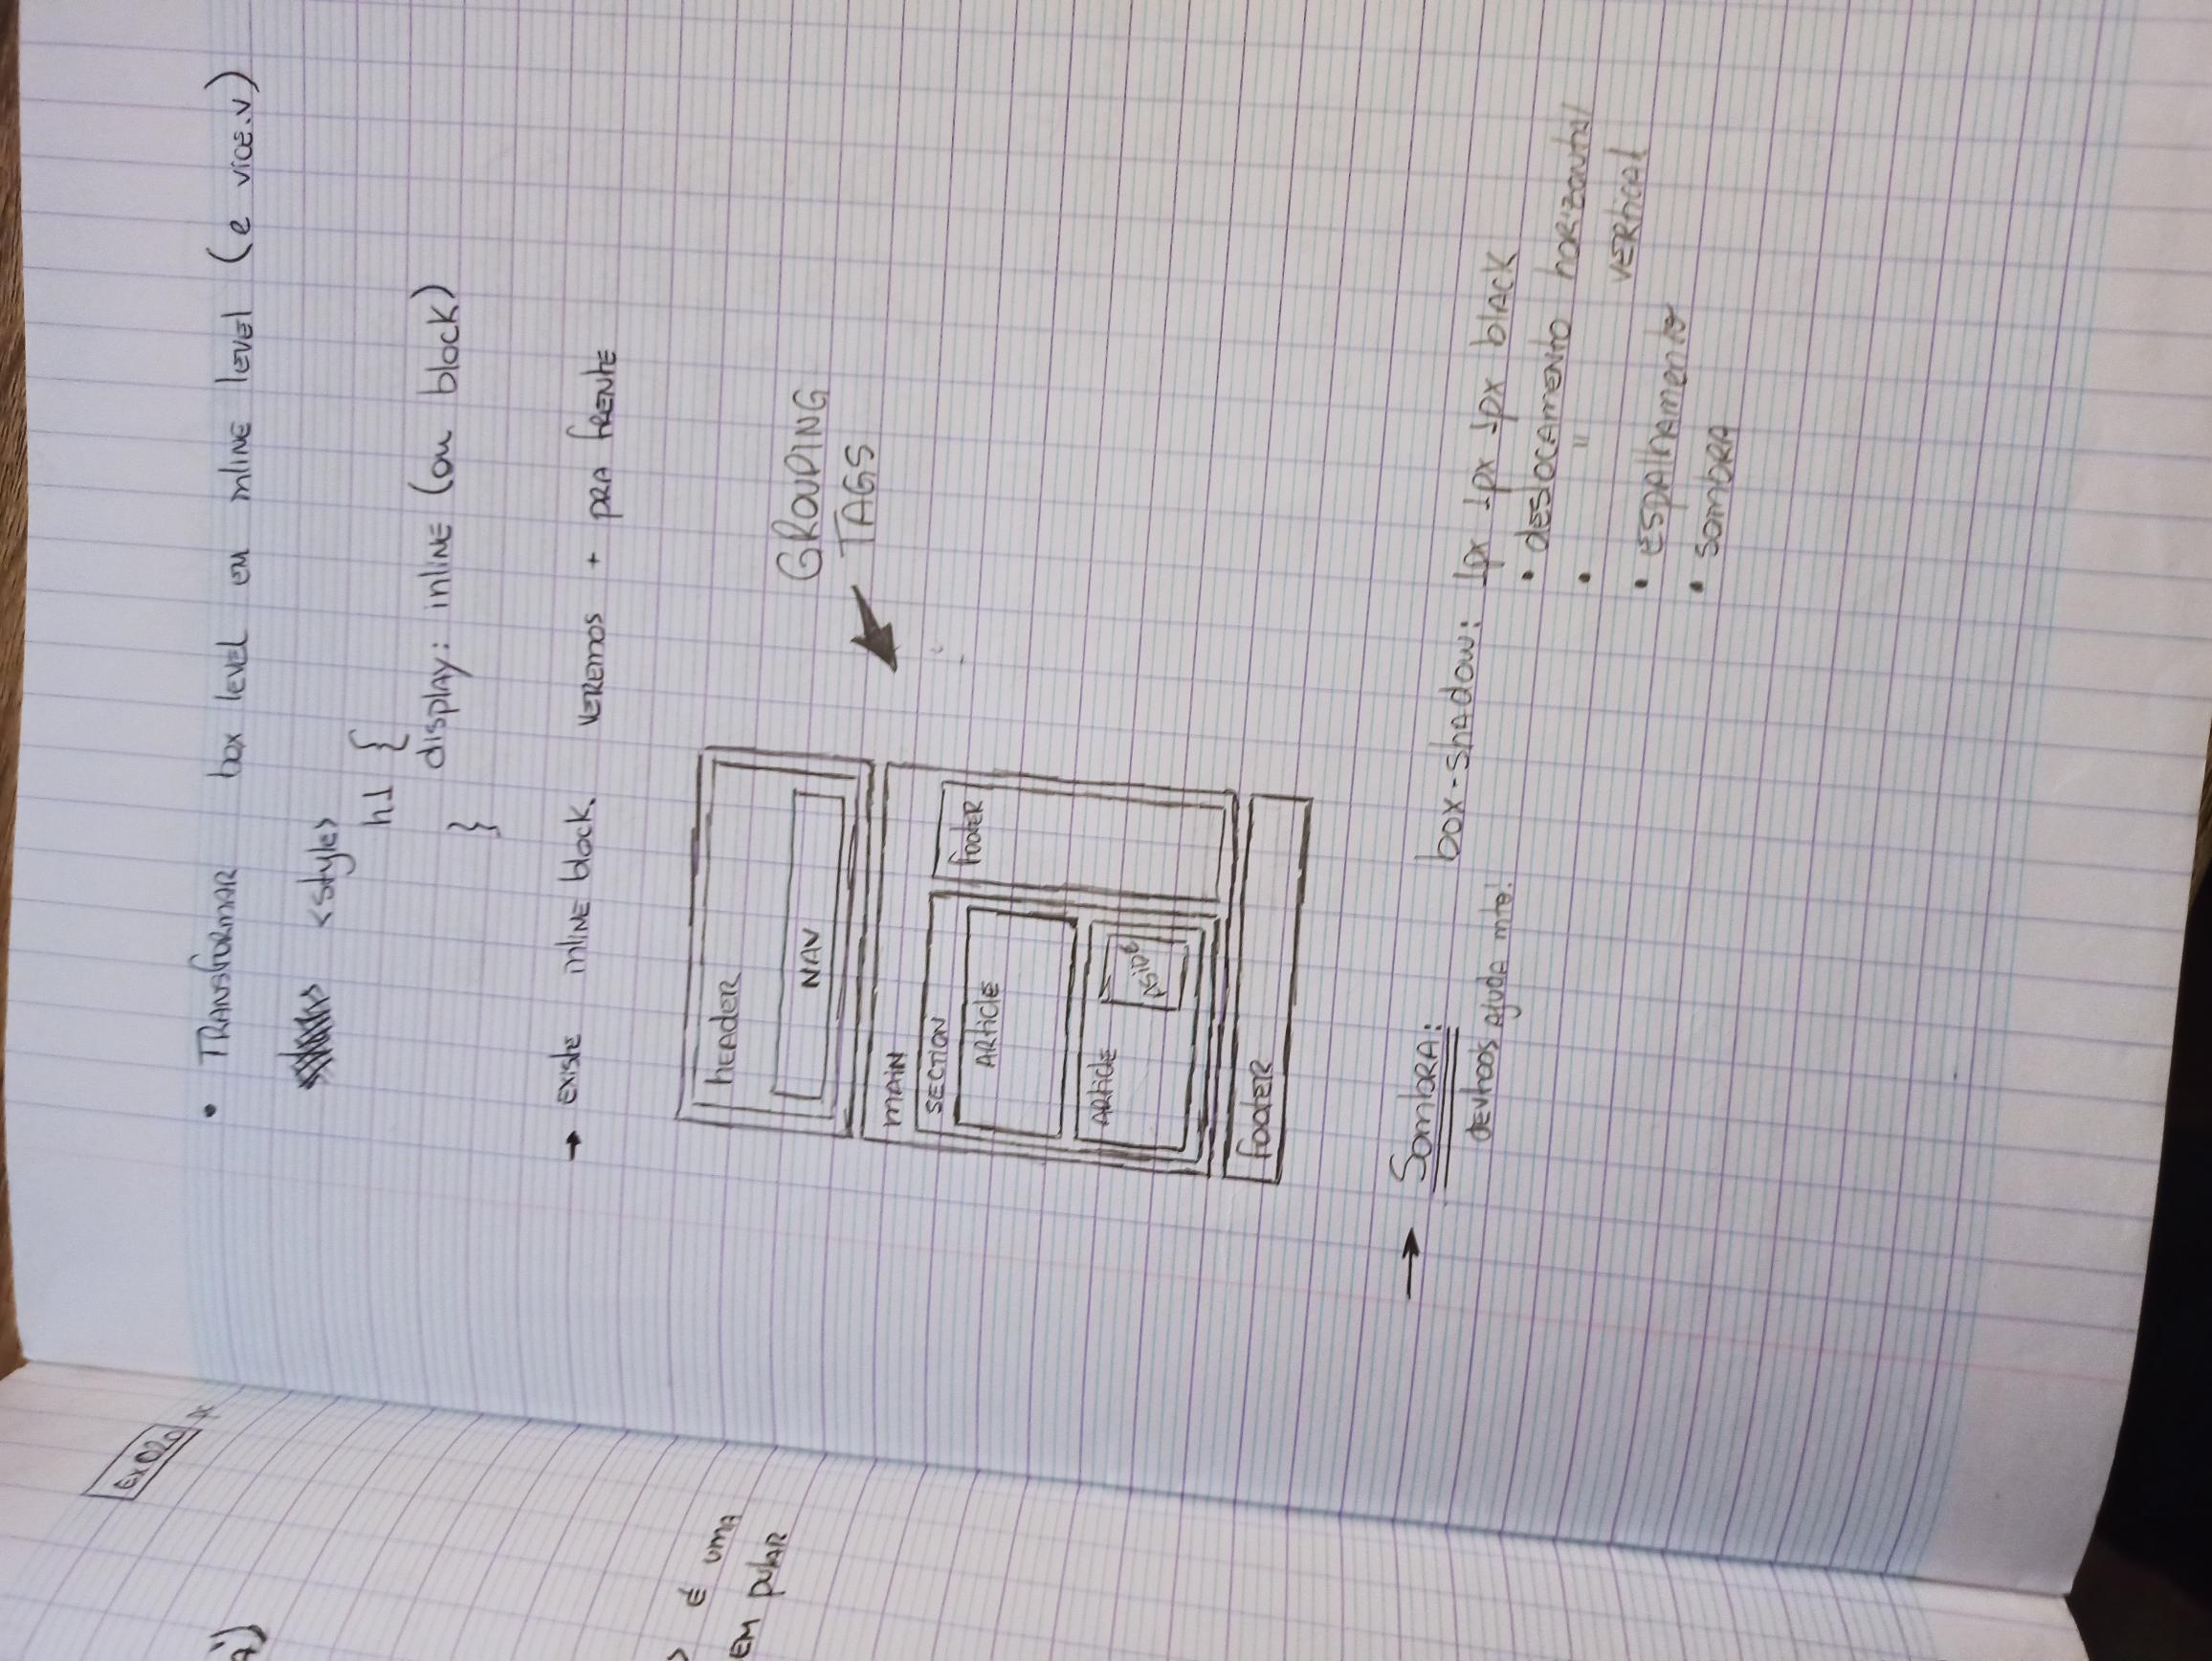 a')
Ex020 *
é uma
em pular
• Transformar box level em inline level (e vice.v)
<style>
h1 {
display: inline (ou block)
}
→ existe inline block, veremos + pra frente
header
nav
main
section
article
article
aside
footer
footer
GROUPING
TAGS
→ Sombra:
devtools ajuda mto!
box-shadow: 1px 1px 1px black
• deslocamento horizontal
• " vertical
• espalhamento
• sombra